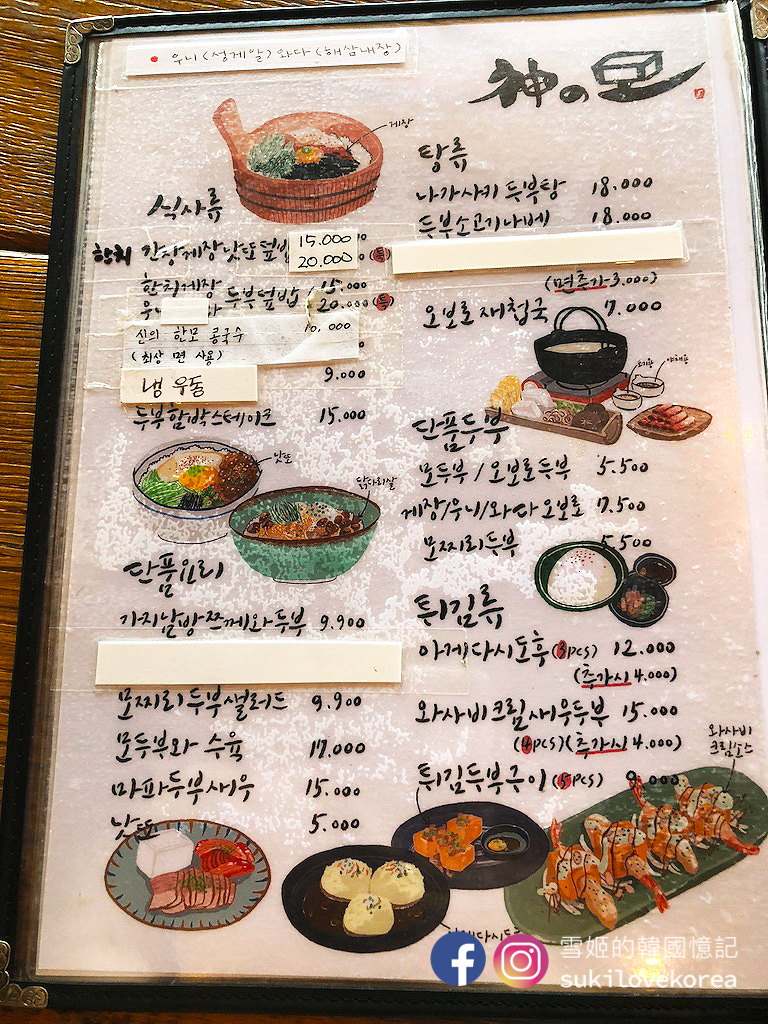 우니(성게알) 와다(해삼내장)
神の豆
게장
식사류
한치 간장게장낫또덮밥 15.000
20.000 (특)
한치게장
두부덮밥 15.000
20.000 (특)
신의 한모 콩국수 10,000
(최상 면 사용)
냉 우동 9.000
두부함박스테이크 15.000
낫또
닭다리살
단품요리
가지날방쯔께와두부 9.900
모찌리두부샐러드 9.900
모두부와 수육 17.000
마파두부새우 15.000
낫또 5.000
탕류
나가사키 두부탕 18.000
두부소고기나베 18.000
(면추가 3.000)
오보로재첩국 7.000
단품두부
모두부/오보로두부 5.500
게장/우니/와다오보로 7.500
모찌리두부 5.500
튀김류
아게다시도후(3pcs) 12.000
(추가시 4.000)
와사비크림새우두부 15.000
(4pcs)(추가시 4.000)
튀김두부구이(5pcs) 9.000
와사비
크림소스
雪姬的韓國憶記
sukilovekorea